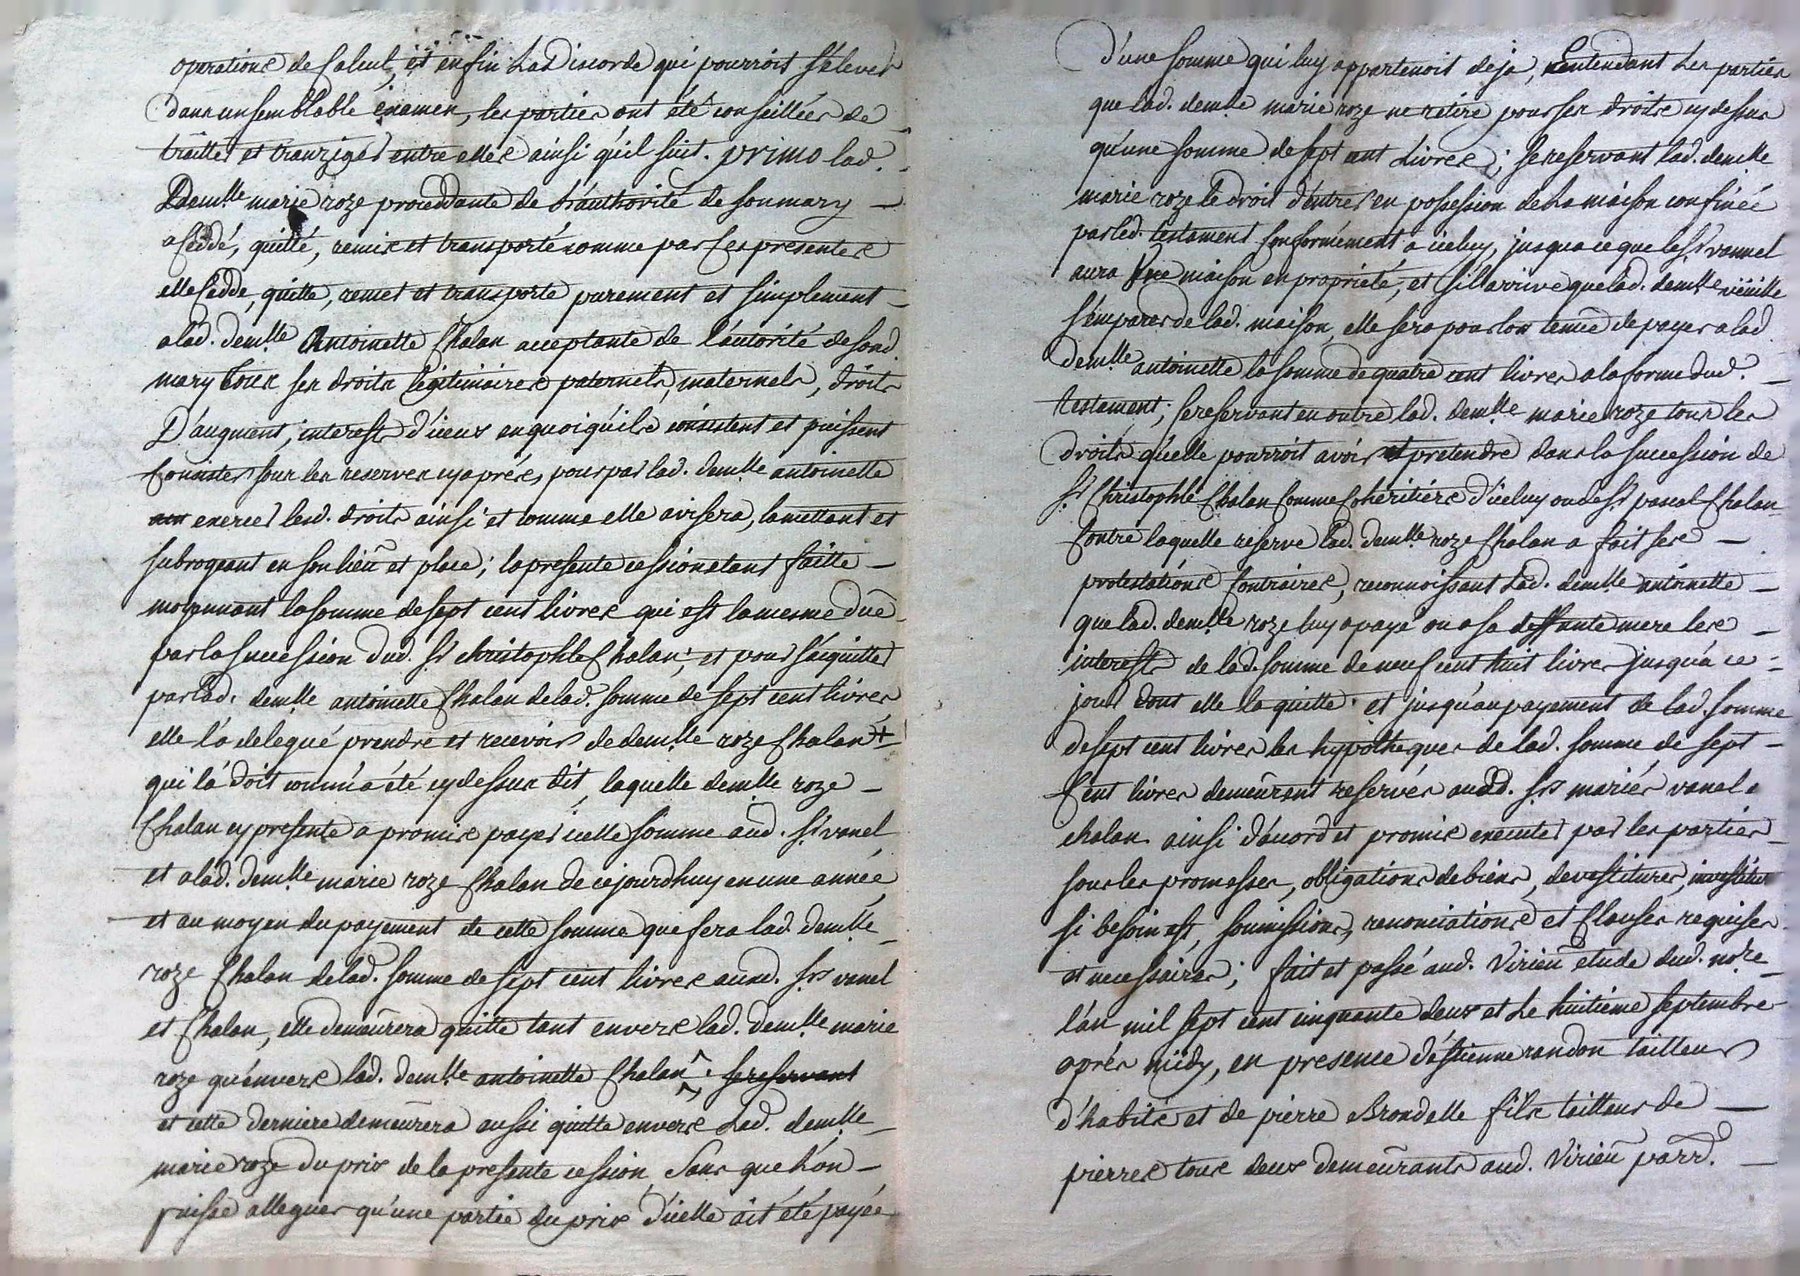 operations de Calcul, et enfin La Discorde qui pourroit s'elever
dans un semblable éxamen, les parties ont été conseillées de
traitter et tranziger entre elles ainsi qu'il suit. primo lad.
Demlle marie roze procedante de l'authorité de son mary
a Cèddé, quitté, remis et transporté comme par Ces presentes
elle Cedde, quitte, remet et transporte purement et simplement
a lad. demlle Antoinette Chalan acceptante de l'autorité de sond.
mary tous ses droits legitimaires paternels, maternels, droits
D'augment, interests d'iceux en quoi qu'ils consistent et puissent
Consister sous les reserves cy aprés, pour par lad. demlle antoinette
exercer lesd. droits ainsi et comme elle avisera, la mettant et
subrogeant en son lieu et place; la presente cession etant faitte
moyennant la somme de sept cent livres qui est la mesme duë
par la succession dud. Sr christophle Chalan; et pour s'aquitter
par lad. demlle antoinette Chalan de lad. somme de sept cent livres
elle l'a delegué prendre et recevoir de demlle roze Chalan +
qui la doit comm'a été cy dessus dit, laquelle demlle roze
Chalan cy presente a promis payer cette somme aud. Sr vanel
et a lad. demlle marie roze Chalan de ce jourdhuy en une année
et au moyen du payement de cette somme que fera lad. demlle
roze Chalan de lad. somme de sept cent livres ausd. Srs vanel
et Chalan, elle demeurera quitte tant envers lad. demlle marie
roze qu'envers lad. demlle antoinette Chalan. se reservant
et cette derniere demeurera aussi quitte envers Lad. demlle
marie roze du prix de la presente cession, Sans que L'on
puisse alleguer qu'une partie du prix d'icelle ait été payée
d'une somme qui luy appartenoit deja, entendant Les parties
que lad. demlle marie roze ne retire pour ses droits cy dessus
qu'une somme de sept cent Livres; se reservant lad. demlle
marie roze le droit d'entrer en possession de La maison confinée
par led. testament Conformement a iceluy, jusqu'a ce que le Sr vannel
aura Une maison en proprieté, et s'il arrive que lad. demlle veuille
s'emparer de lad. maison, elle sera pour lors tenue de payer a lad.
demlle antoinette la somme de quatre cent livres a la forme dud.
testament; se reservant en outre lad. demlle marie roze tous les
droits qu'elle pourroit avoir et pretendre dans la succession de
Sr Christophle Chalan Comme Coheritiére d'iceluy ou de Sr pascal Chalan
Contre laquelle reserve lad. demlle roze Chalan a fait ses
protestations Contraires, reconnoissant Lad. demlle antoinette
que lad. demlle roze luy a payé ou a sa deffunte mere les
interests de lad. somme de neuf cent huit livres jusqu'a ce
jour dont elle la quitte. et jusqu'au payement de lad. somme
de sept cent livres les hypotheques de lad. somme de sept
Cent livres demeurent reservés ausd. Srs mariés vanel
chalan. ainsi d'acord et promis executer par les parties
sous les promesses, obligations de biens, devestitures, investitures
si besoin est, soumissions, renonciations et Clauses requises
et necessaires; fait et passé aud. Virieu étude dud. nore
l'an mil sept cent cinquante deux et Le huitiéme septembre
aprés midy, en presence d'éstienne randon tailleur
d'habits et de pierre Brondelle fils tailleur de
pierres tous deux demeurants aud. Virieu